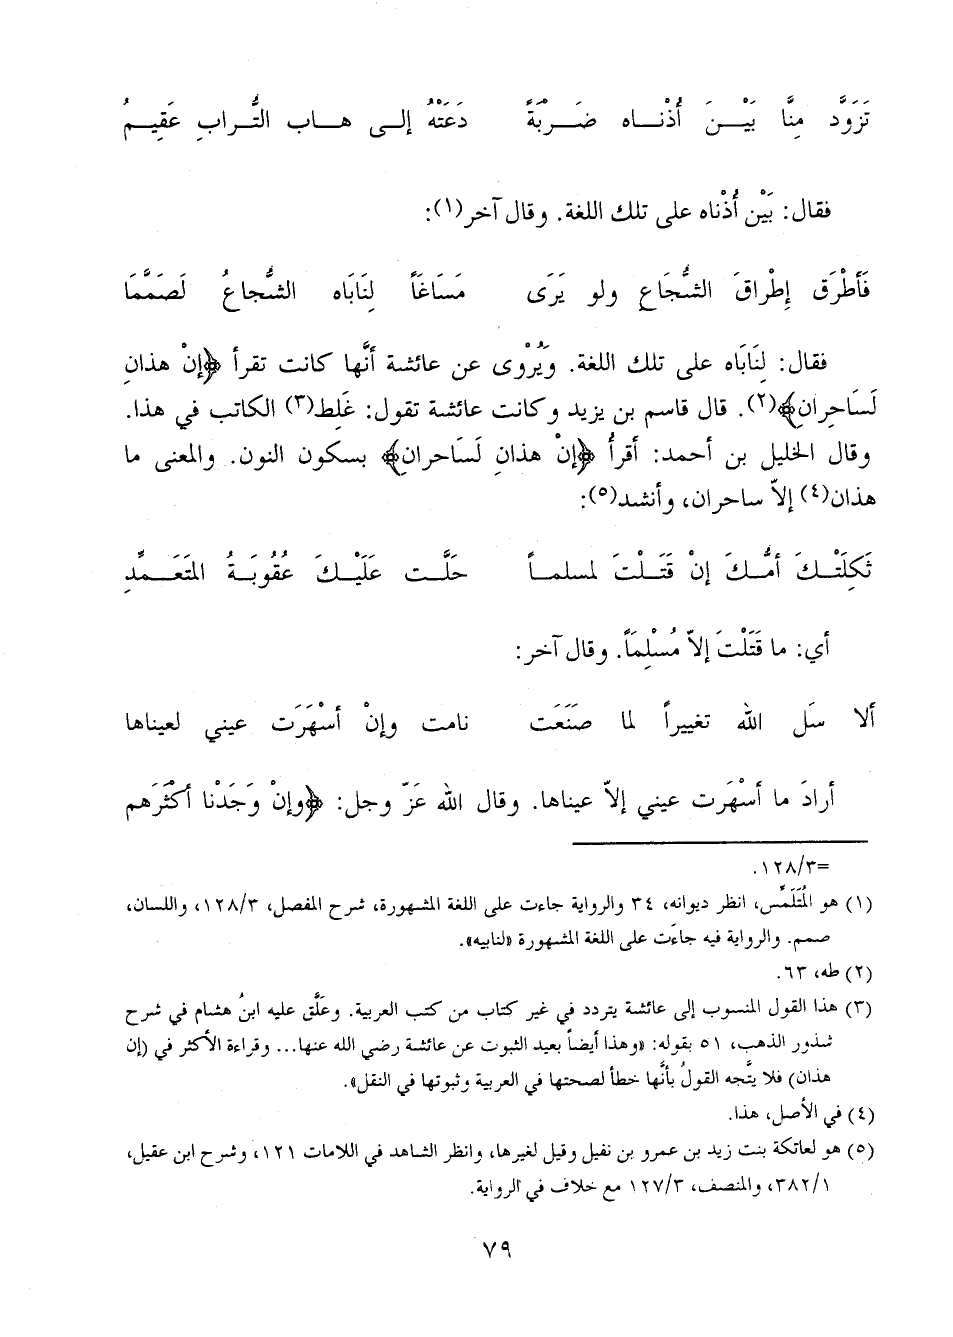 تَزَوَّد مِنَّا بَيْــنَ أُذْنــاه ضَــرْبَةً دَعَتْهُ إلــى هــاب التُّــرابِ عَقِيــمُ
فقال: بَيْن أُذْناه على تلك اللغة. وقال آخر(١):
فَأطْرَق إطْراقَ الشُّجَاعِ ولو يَرَى مَسَاغَاً لِنَابَاه الشُّجاعُ لَصَمَّمَا
فقال: لِنَابَاه على تلك اللغة. ويُرْوٰى عن عائشة أنَّها كانت تقرأ ﴿إنْ هذانِ
لَسَاحِرانِ﴾(٢). قال قاسم بن يزيد وكانت عائشة تقول: غَلِط(٣) الكاتب في هذا.
وقال الخليل بن أحمد: أقرأُ ﴿إنْ هذانِ لَسَاحران﴾ بسكون النون. والمعنى ما
هذان(٤) إلاّ ساحران، وأنشد(٥):
ثَكِلَتْــكَ أمُّــكَ إنْ قَتَــلْتَ لمسلمــاً حَلَّــت عَلَيْــكَ عُقُوبَــةُ المتَعَمِّــدِ
أي: ما قَتَلْتَ إلاّ مُسْلِمَاً. وقال آخر:
ألا سَل الله تغييراً لما صَنَعَت نامت وإنْ أسْهَرَت عيني لعيناها
أرادَ ما أسْهَرَت عيني إلاّ عيناها. وقال الله عَزّ وجل: ﴿وإنْ وَجَدْنا أكثَرَهم
=١٢٨/٣.
(١) هو المُتَلَمِّس، انظر ديوانه، ٣٤ والرواية جاءت على اللغة المشهورة، شرح المفصل، ١٢٨/٣، واللسان،
صمم. والرواية فيه جاءَت على اللغة المشهورة «لنابيه».
(٢) طه، ٦٣.
(٣) هذا القول المنسوب إلى عائشة يتردد في غير كتاب من كتب العربية. وعَلَّق عليه ابنُ هشام في شرح
شذور الذهب، ٥١ بقوله: «وهذا أيضاً بعيد الثبوت عن عائشة رضي الله عنها... وقراءة الأكثر في (إن
هذان) فلا يتَّجه القولُ بأنَّها خطأ لصحتها في العربية وثبوتها في النقل».
(٤) في الأصل، هذا.
(٥) هو لعاتكة بنت زيد بن عمرو بن نفيل وقيل لغيرها، وانظر الشاهد في اللامات ١٢١، وشرح ابن عقيل،
٣٨٢/١، والمنصف، ١٢٧/٣ مع خلاف في الرواية.
٧٩